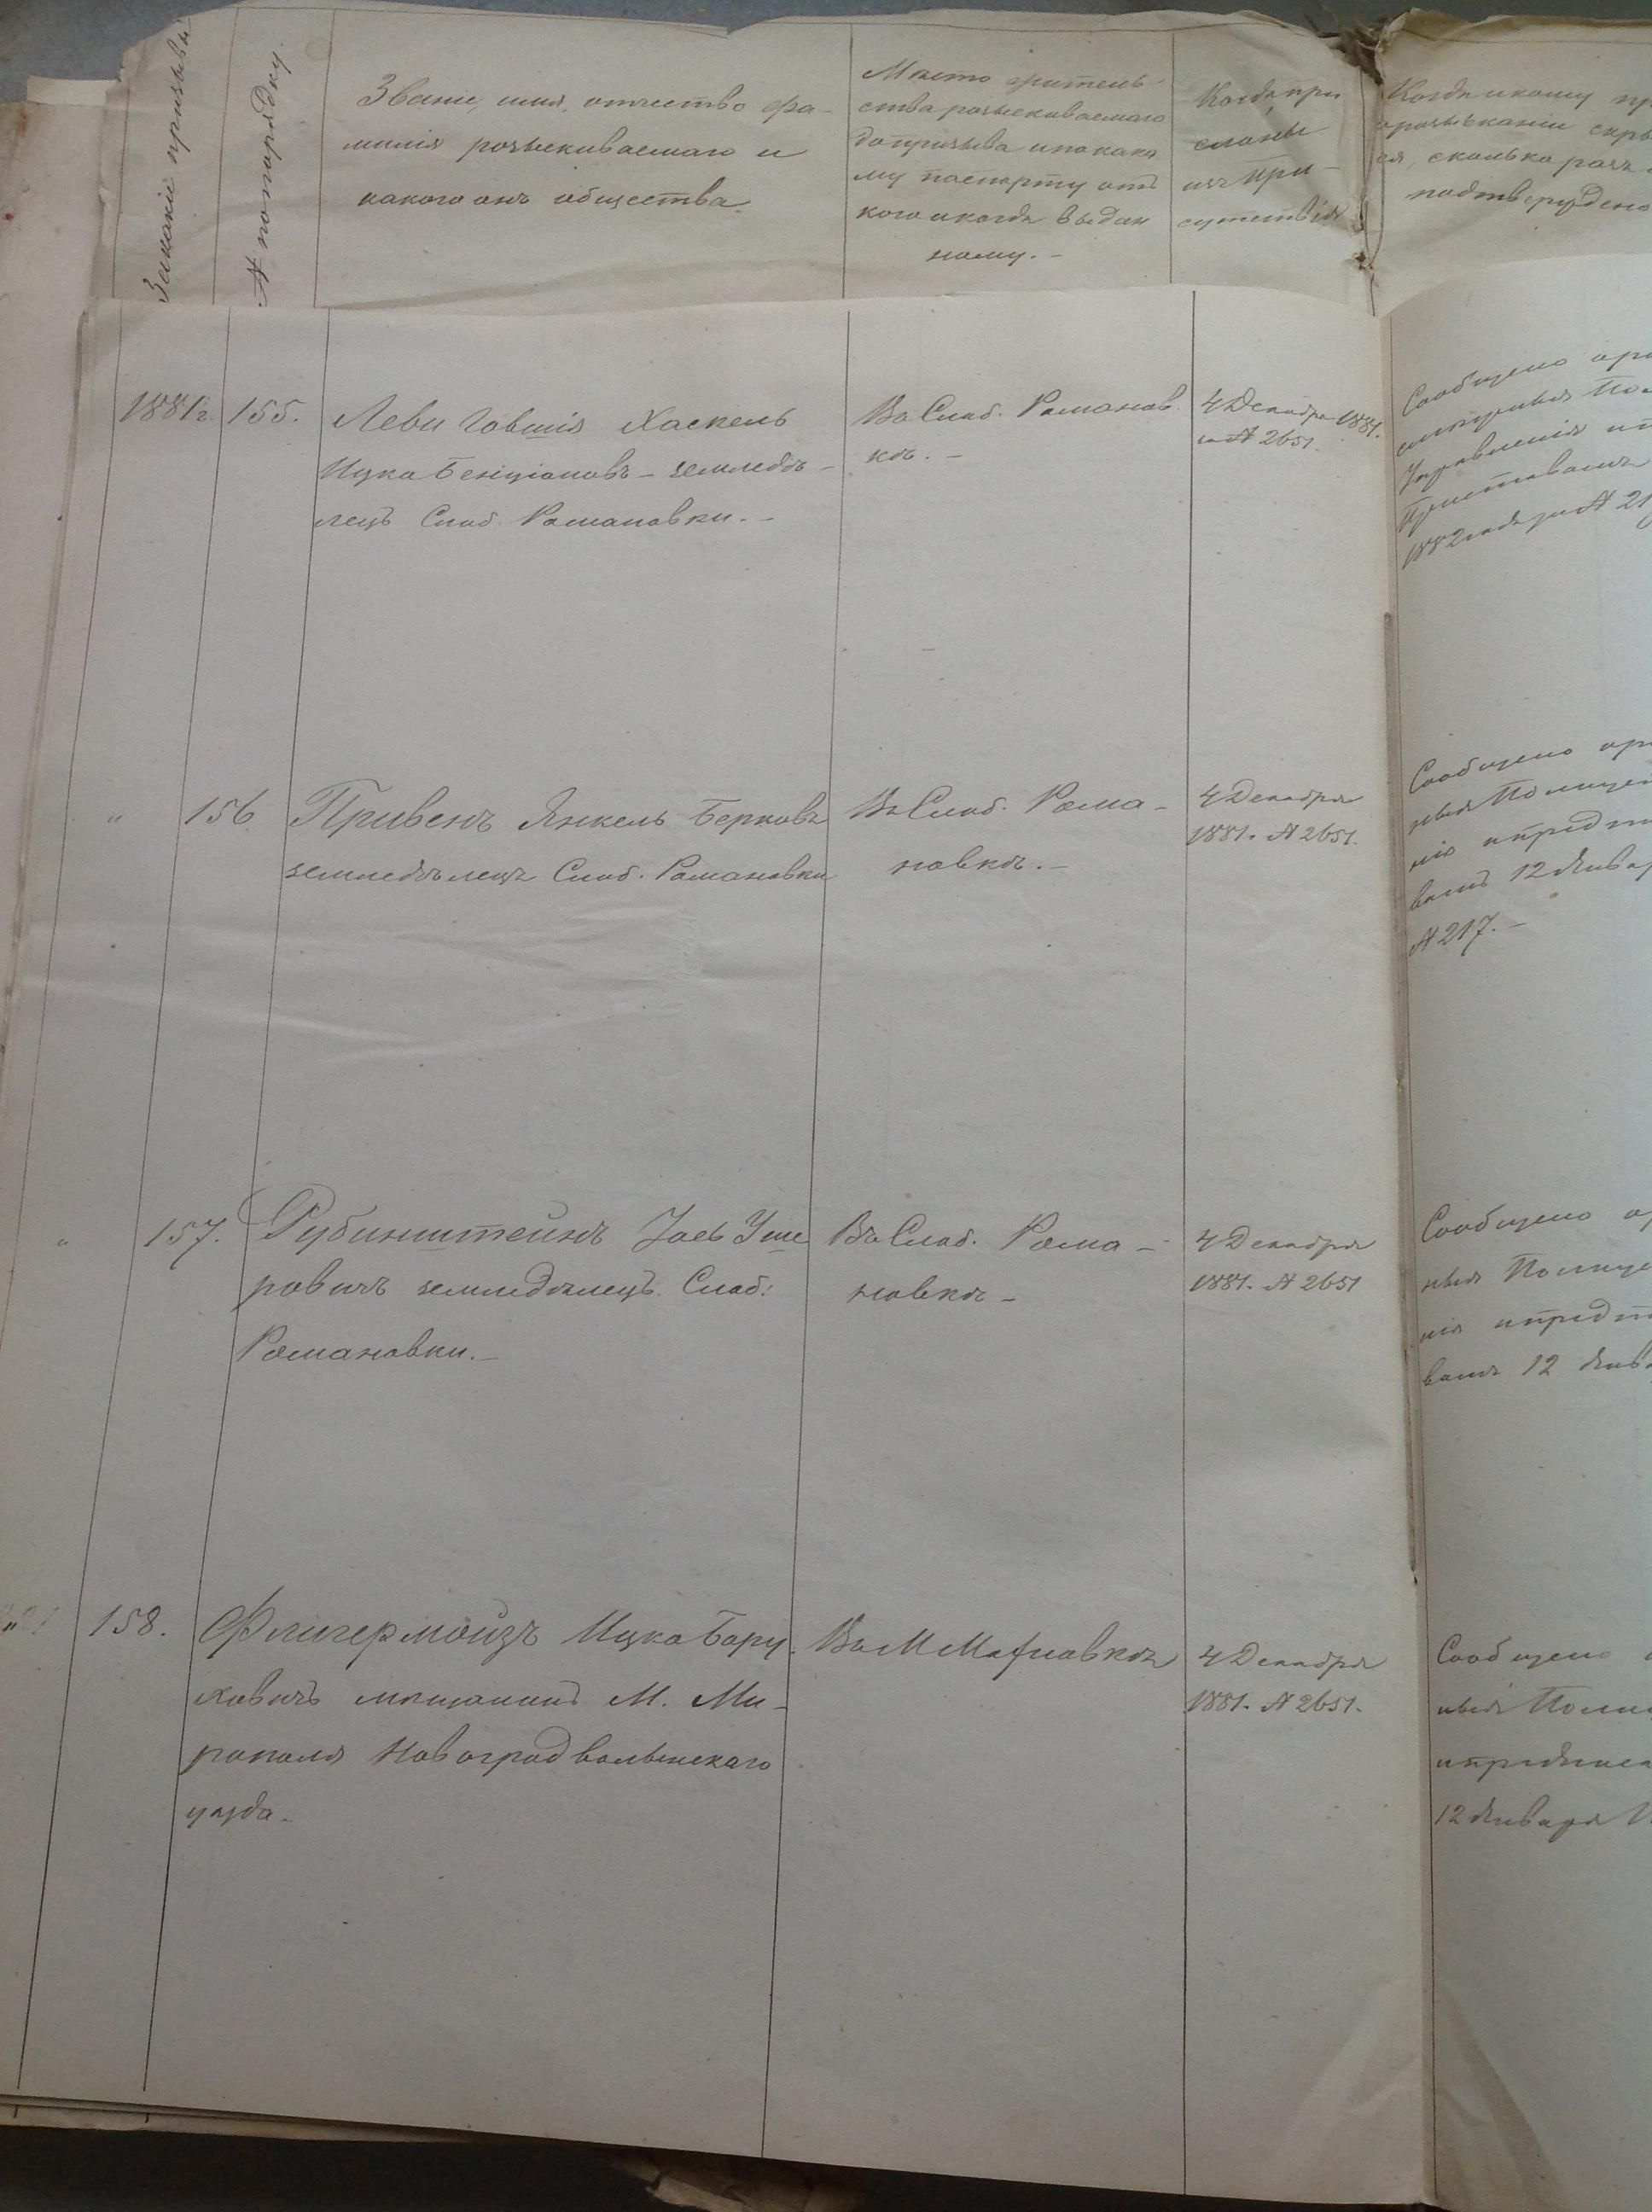 За какой призывъ
№ по порядку.
Званіе, имя, отчество фа-
милія розыскиваемаго и
какого онъ общества
Мѣсто житель-
ства розыскиваемаго
до призыва и по како
му паспорту отъ
кого и когда выдан
ному. -
Когда при
сланы
изъ При-
сутствія
Когда и кому
розысканіи
ся, сколько разъ
подтверждено
1881г. 155. Леви Говшія Хаскель
Ицка Бенціоновъ - земледѣ-
лецъ Слоб. Романовки. -
Въ Слоб. Романов.
кѣ. -
4 Декабря 1881.
за № 2651.
Сообщено
Управленія
Приставамъ
1882 года за № 21
" 156 Привенъ Янкель Берковъ
земледѣлецъ Слоб. Романовки
Въ Слоб. Рома-
новкѣ. -
4 Декабря
1881. № 2651.
Сообщено
ныя Полицей
нія и предпи
вамъ 12 Январ
№ 217. -
" 157. Рубинштейнъ Іось Уше
ровичъ земледѣлецъ Слоб:
Романовки. -
Въ Слоб. Рома-
новкѣ -
4 Декабря
1881. № 2651
Сообщено
ныя Полице
нія и предпи
вамъ 12 Янв
" 158. Флигермойзъ Ицко Бору.
ховичъ мѣщанинъ М. Ми-
рополя Новоградволынскаго
уѣзда -
Въ М
4 Декабря
1881. № 2651.
Сообщено
ныя Полиц
12 Января